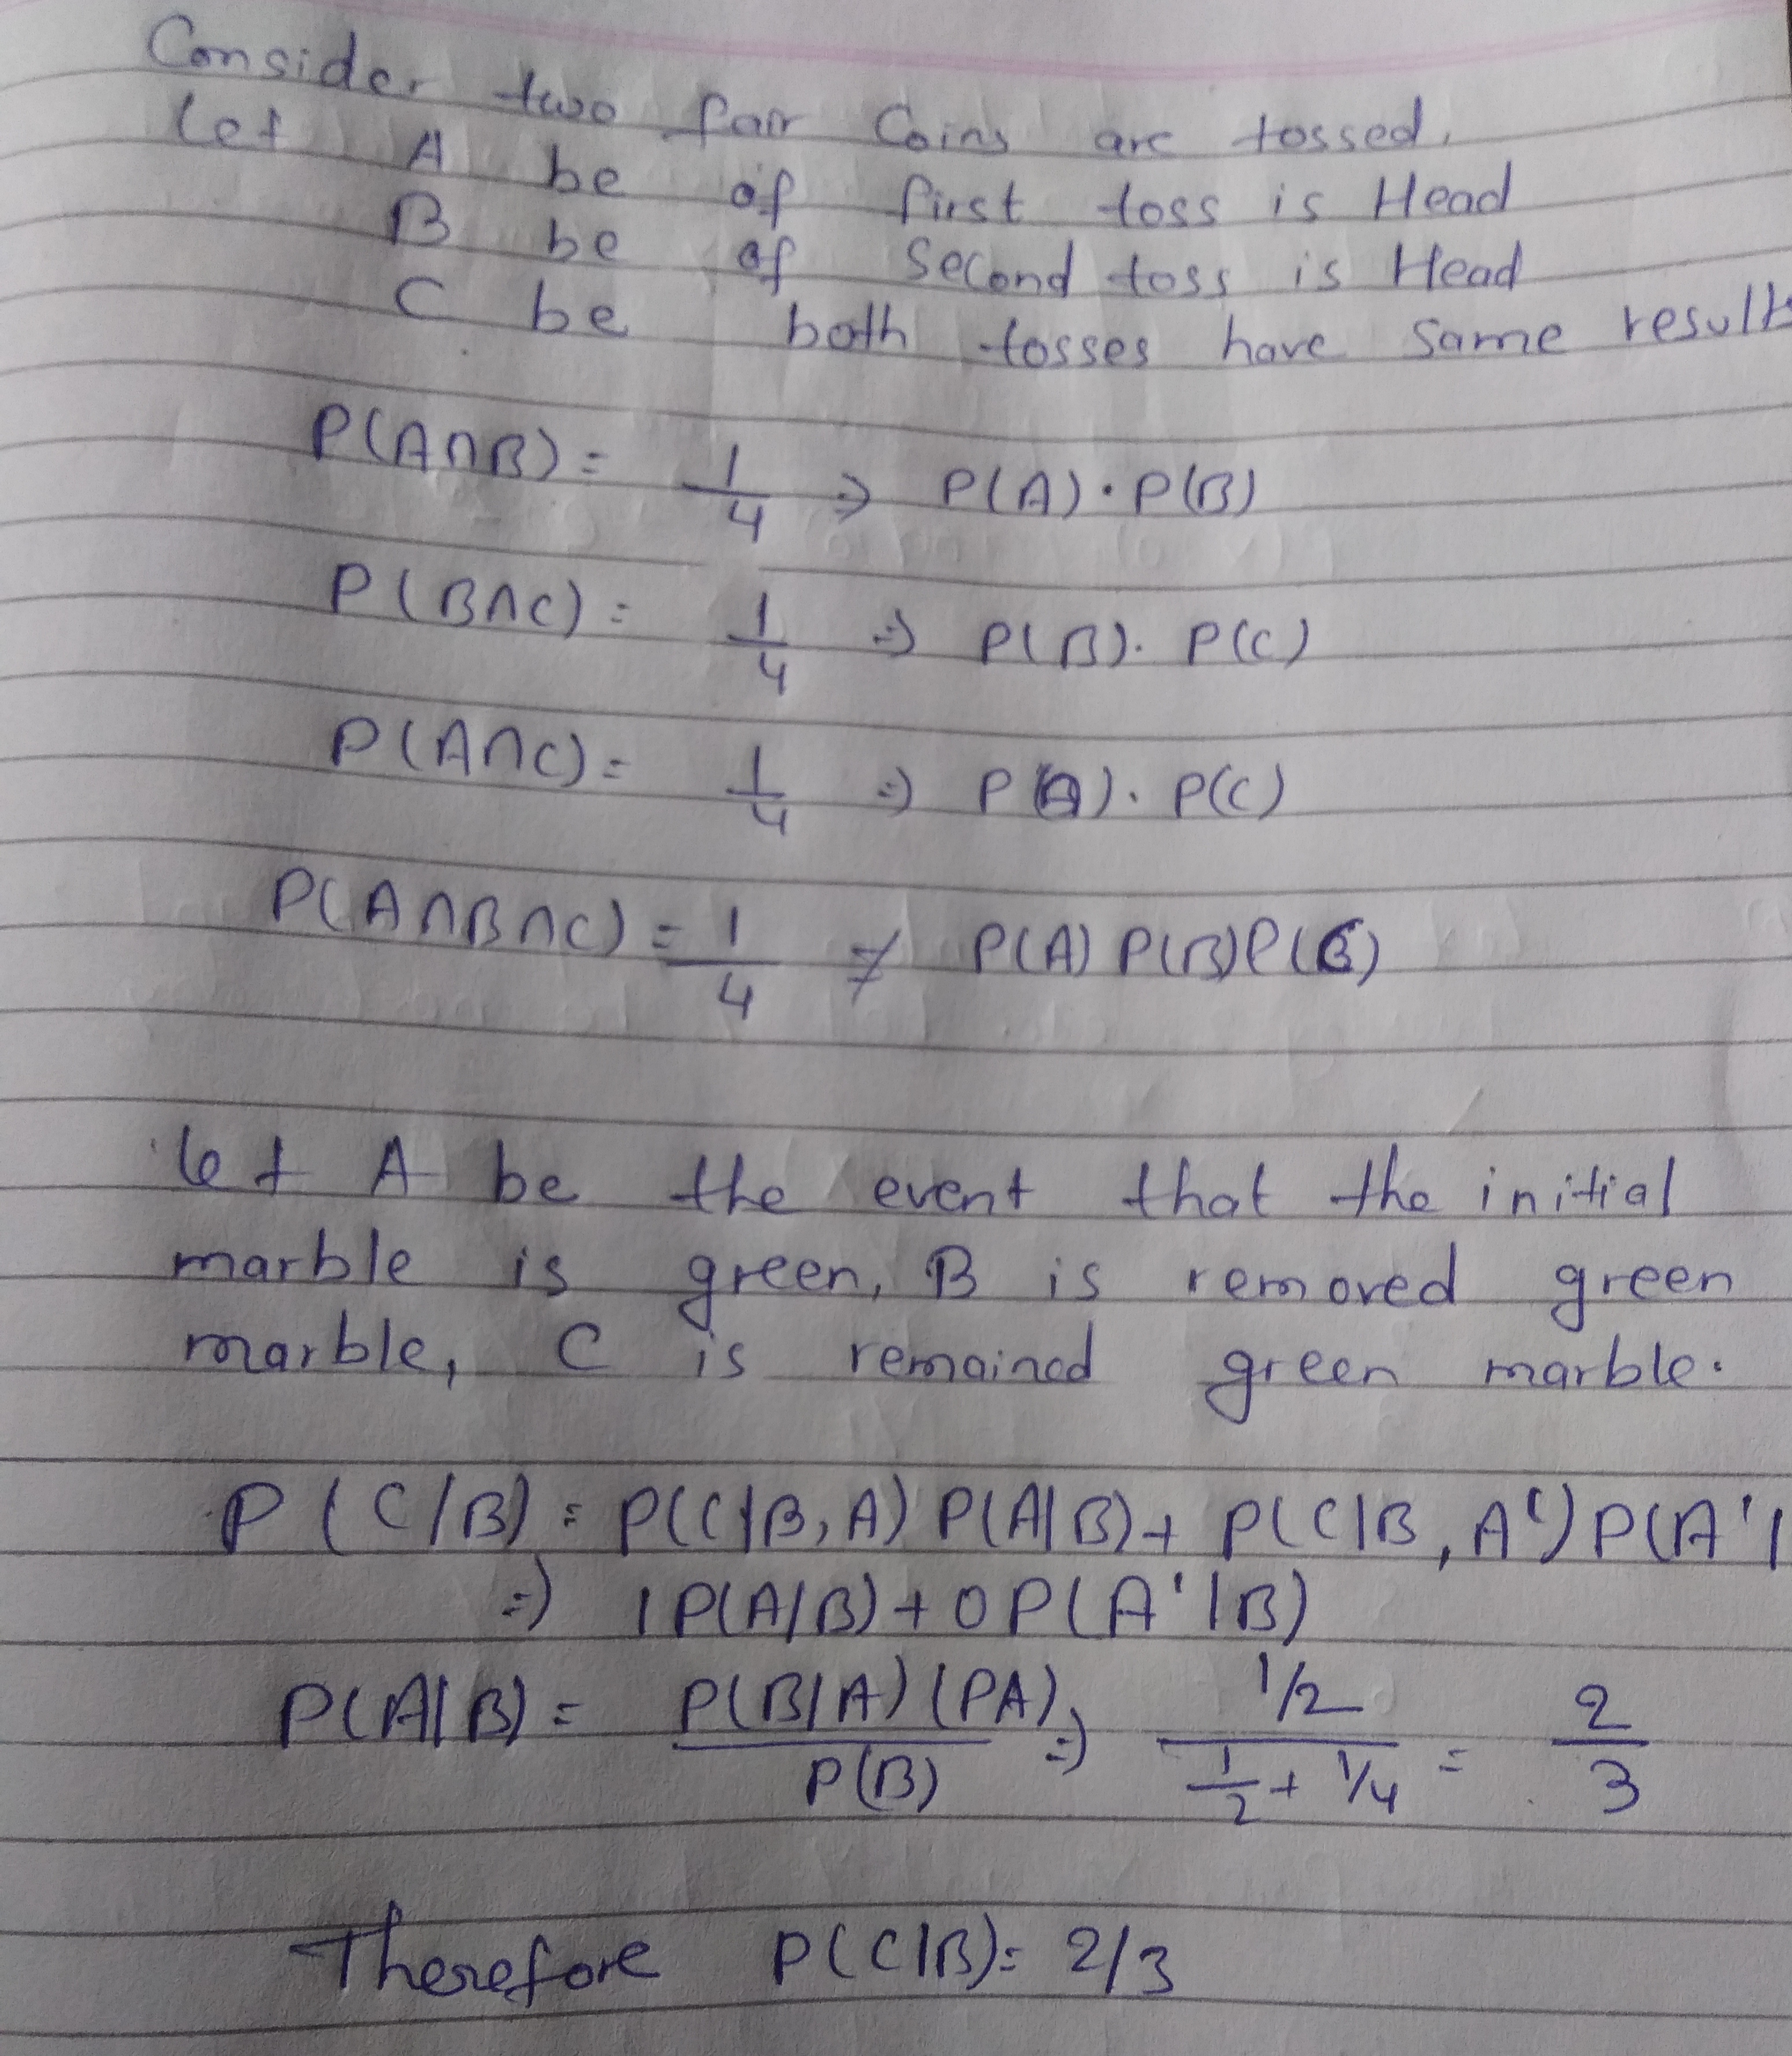 Consider two fair Coins are tossed.
Let A be of first toss is Head
B be of Second toss is Head
C be both tosses have same result
P(A∩B) = 1/4 ⇒ P(A)·P(B)
P(B∩C) = 1/4 ⇒ P(B). P(C)
P(A∩C) = 1/4 ⇒ P(A). P(C)
P(A∩B∩C) = 1/4 ≠ P(A) P(B)P(C)
let A be the event that the initial
marble is green, B is removed green
marble, C is remained green marble.
P(C/B) = P(C|B, A) P(A|B) + P(C|B, A') P(A'|
⇒ 1 P(A/B) + 0 P(A'|B)
P(A|B) = P(B|A) (PA) / P(B) ⇒ 1/2 / (1/2 + 1/4) = 2/3
Therefore P(C|B) = 2/3